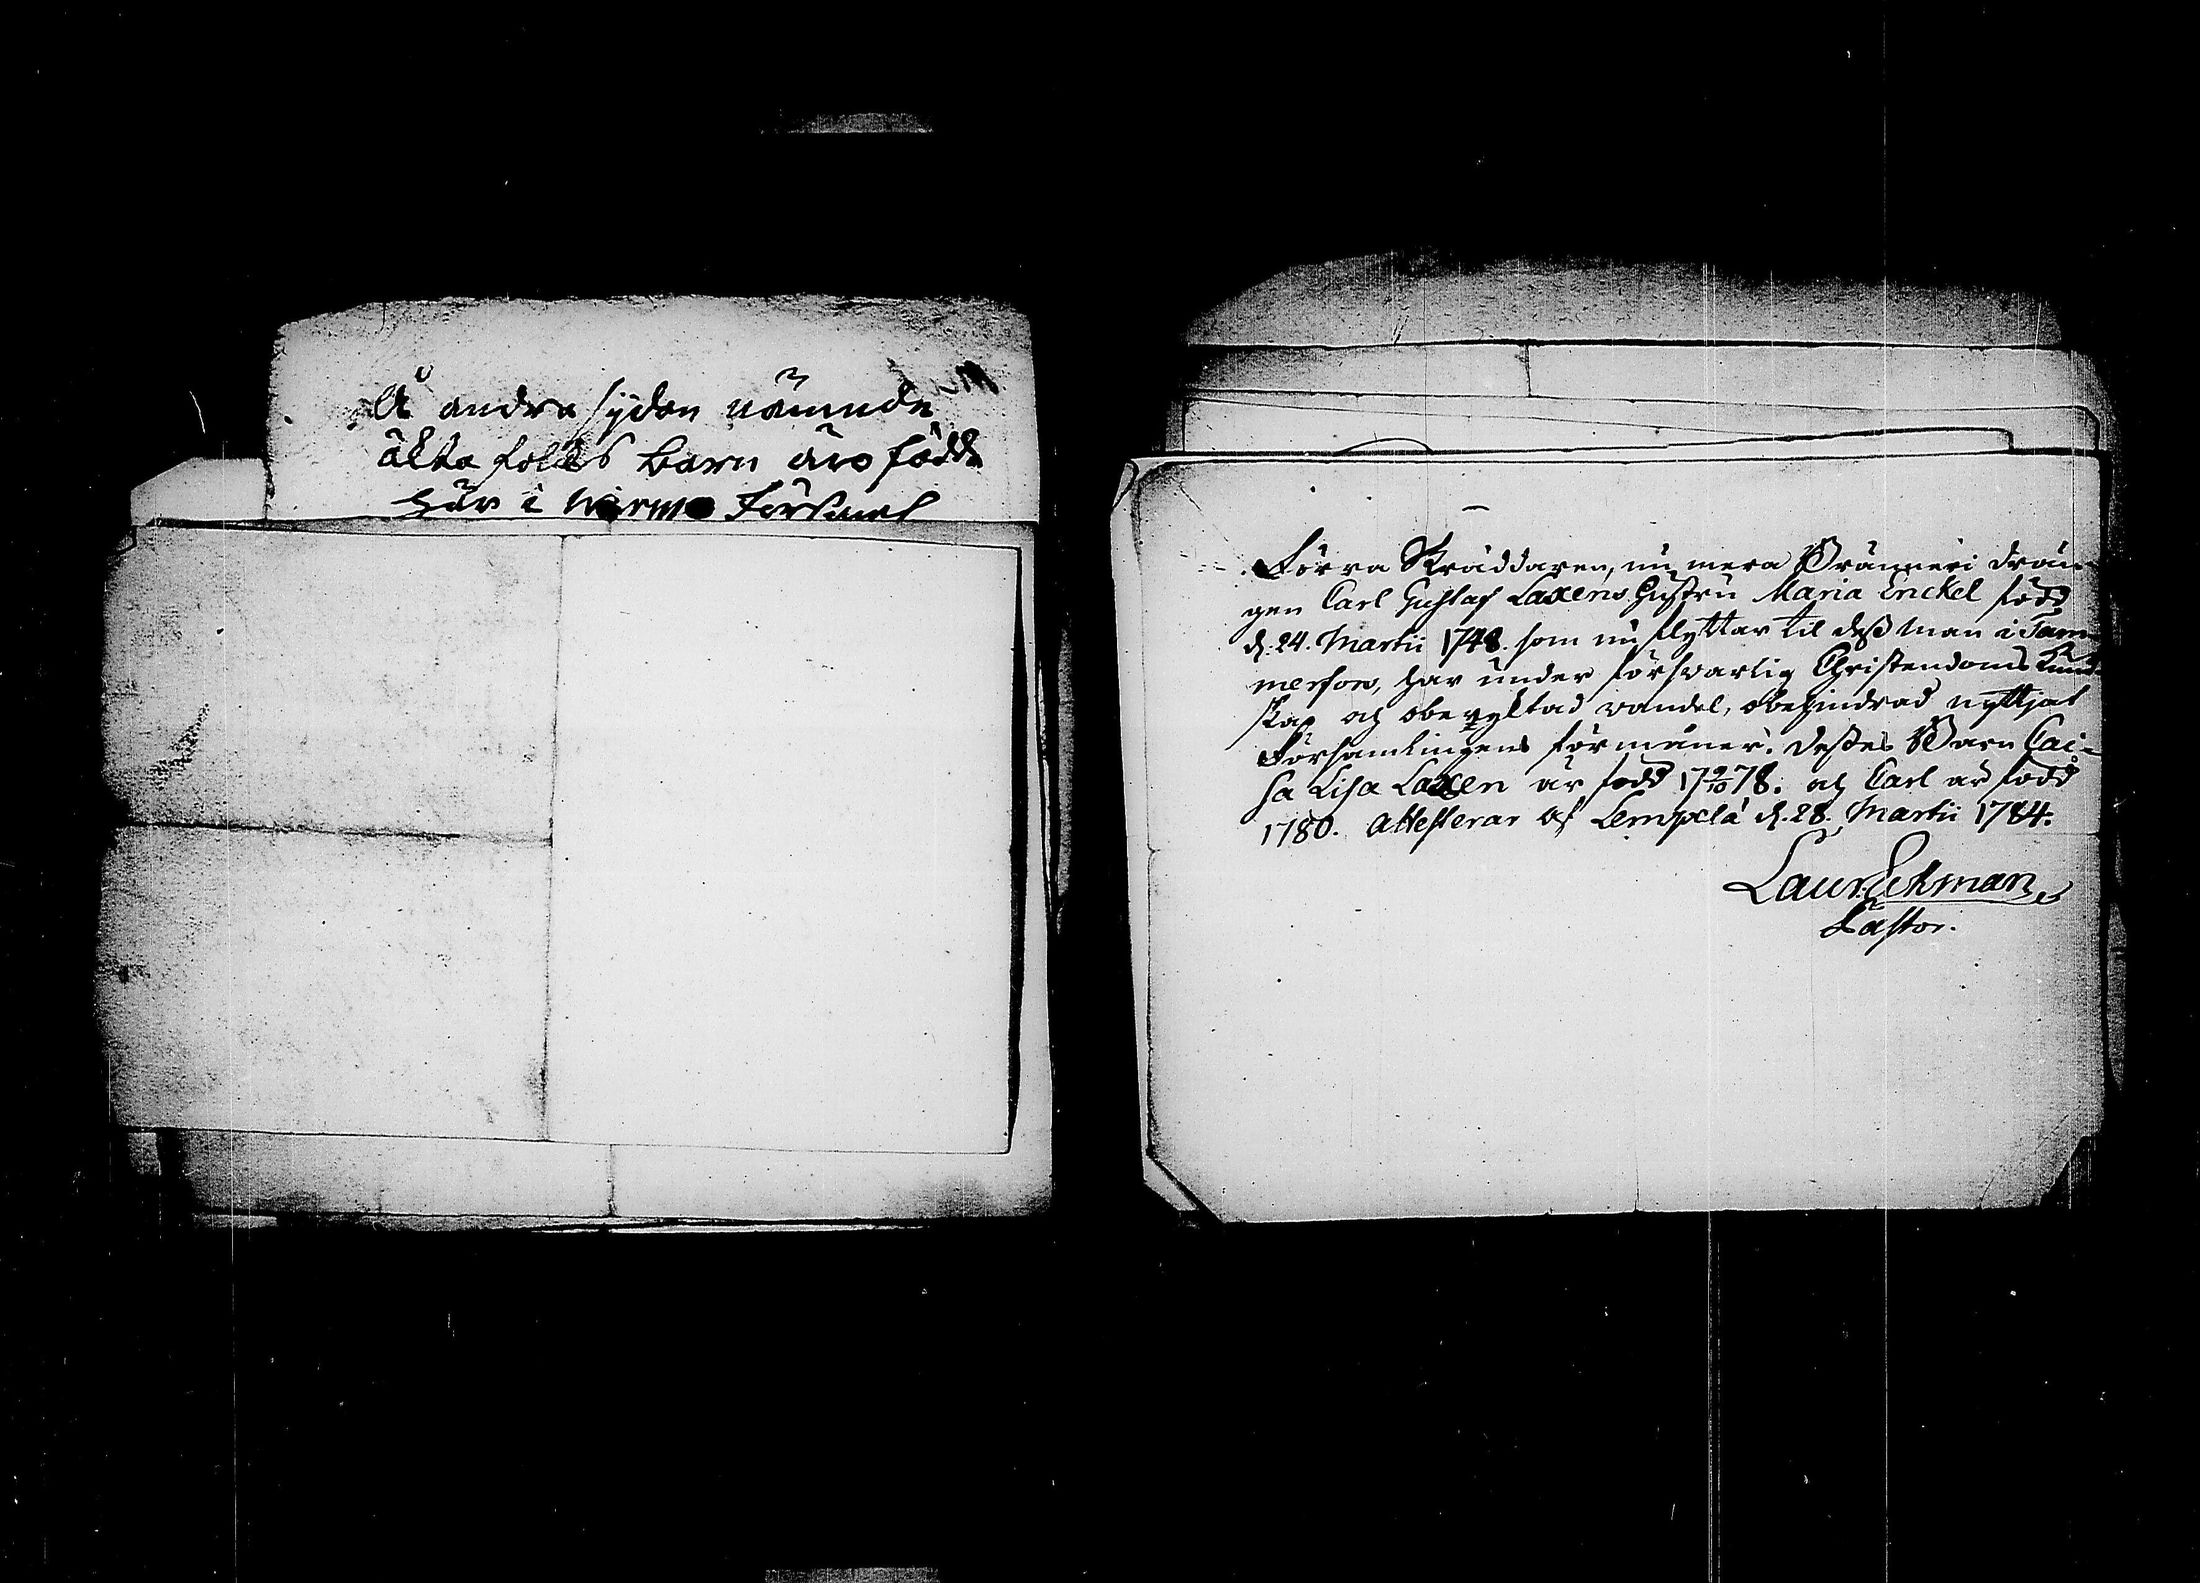 Å andra sijdan nämnde
äkta folks barn äro födde
här i Wirmo Församl
Förra Skräddaren, nu mera Bränneri drän-
gen Carl Gustaf Laxens Hustru Maria Enckel född
d. 24. Martii 1748. som nu flyttar til dess man i Tam-
merfors, har under försvarlig Christendoms kund-
skap och oberyktad vandel, obehindrad nyttjat
Församlingens förmåner. Desses Barn Cai-
sa Lisa Laxen är född 17 9/10 78. och Carl är född
1780. Attesterar af Lempelä d. 28. Martii 1784.
Laur. Ekman
Pastor.